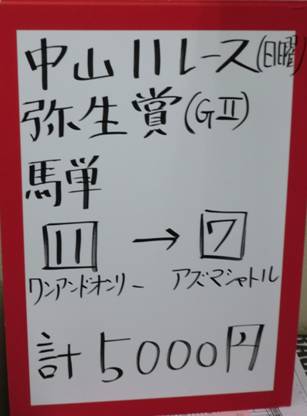 中山11レース(日曜)
弥生賞(GⅡ)
馬単
11 → 7
ワンアンドオンリー アズマシャトル
計5000円